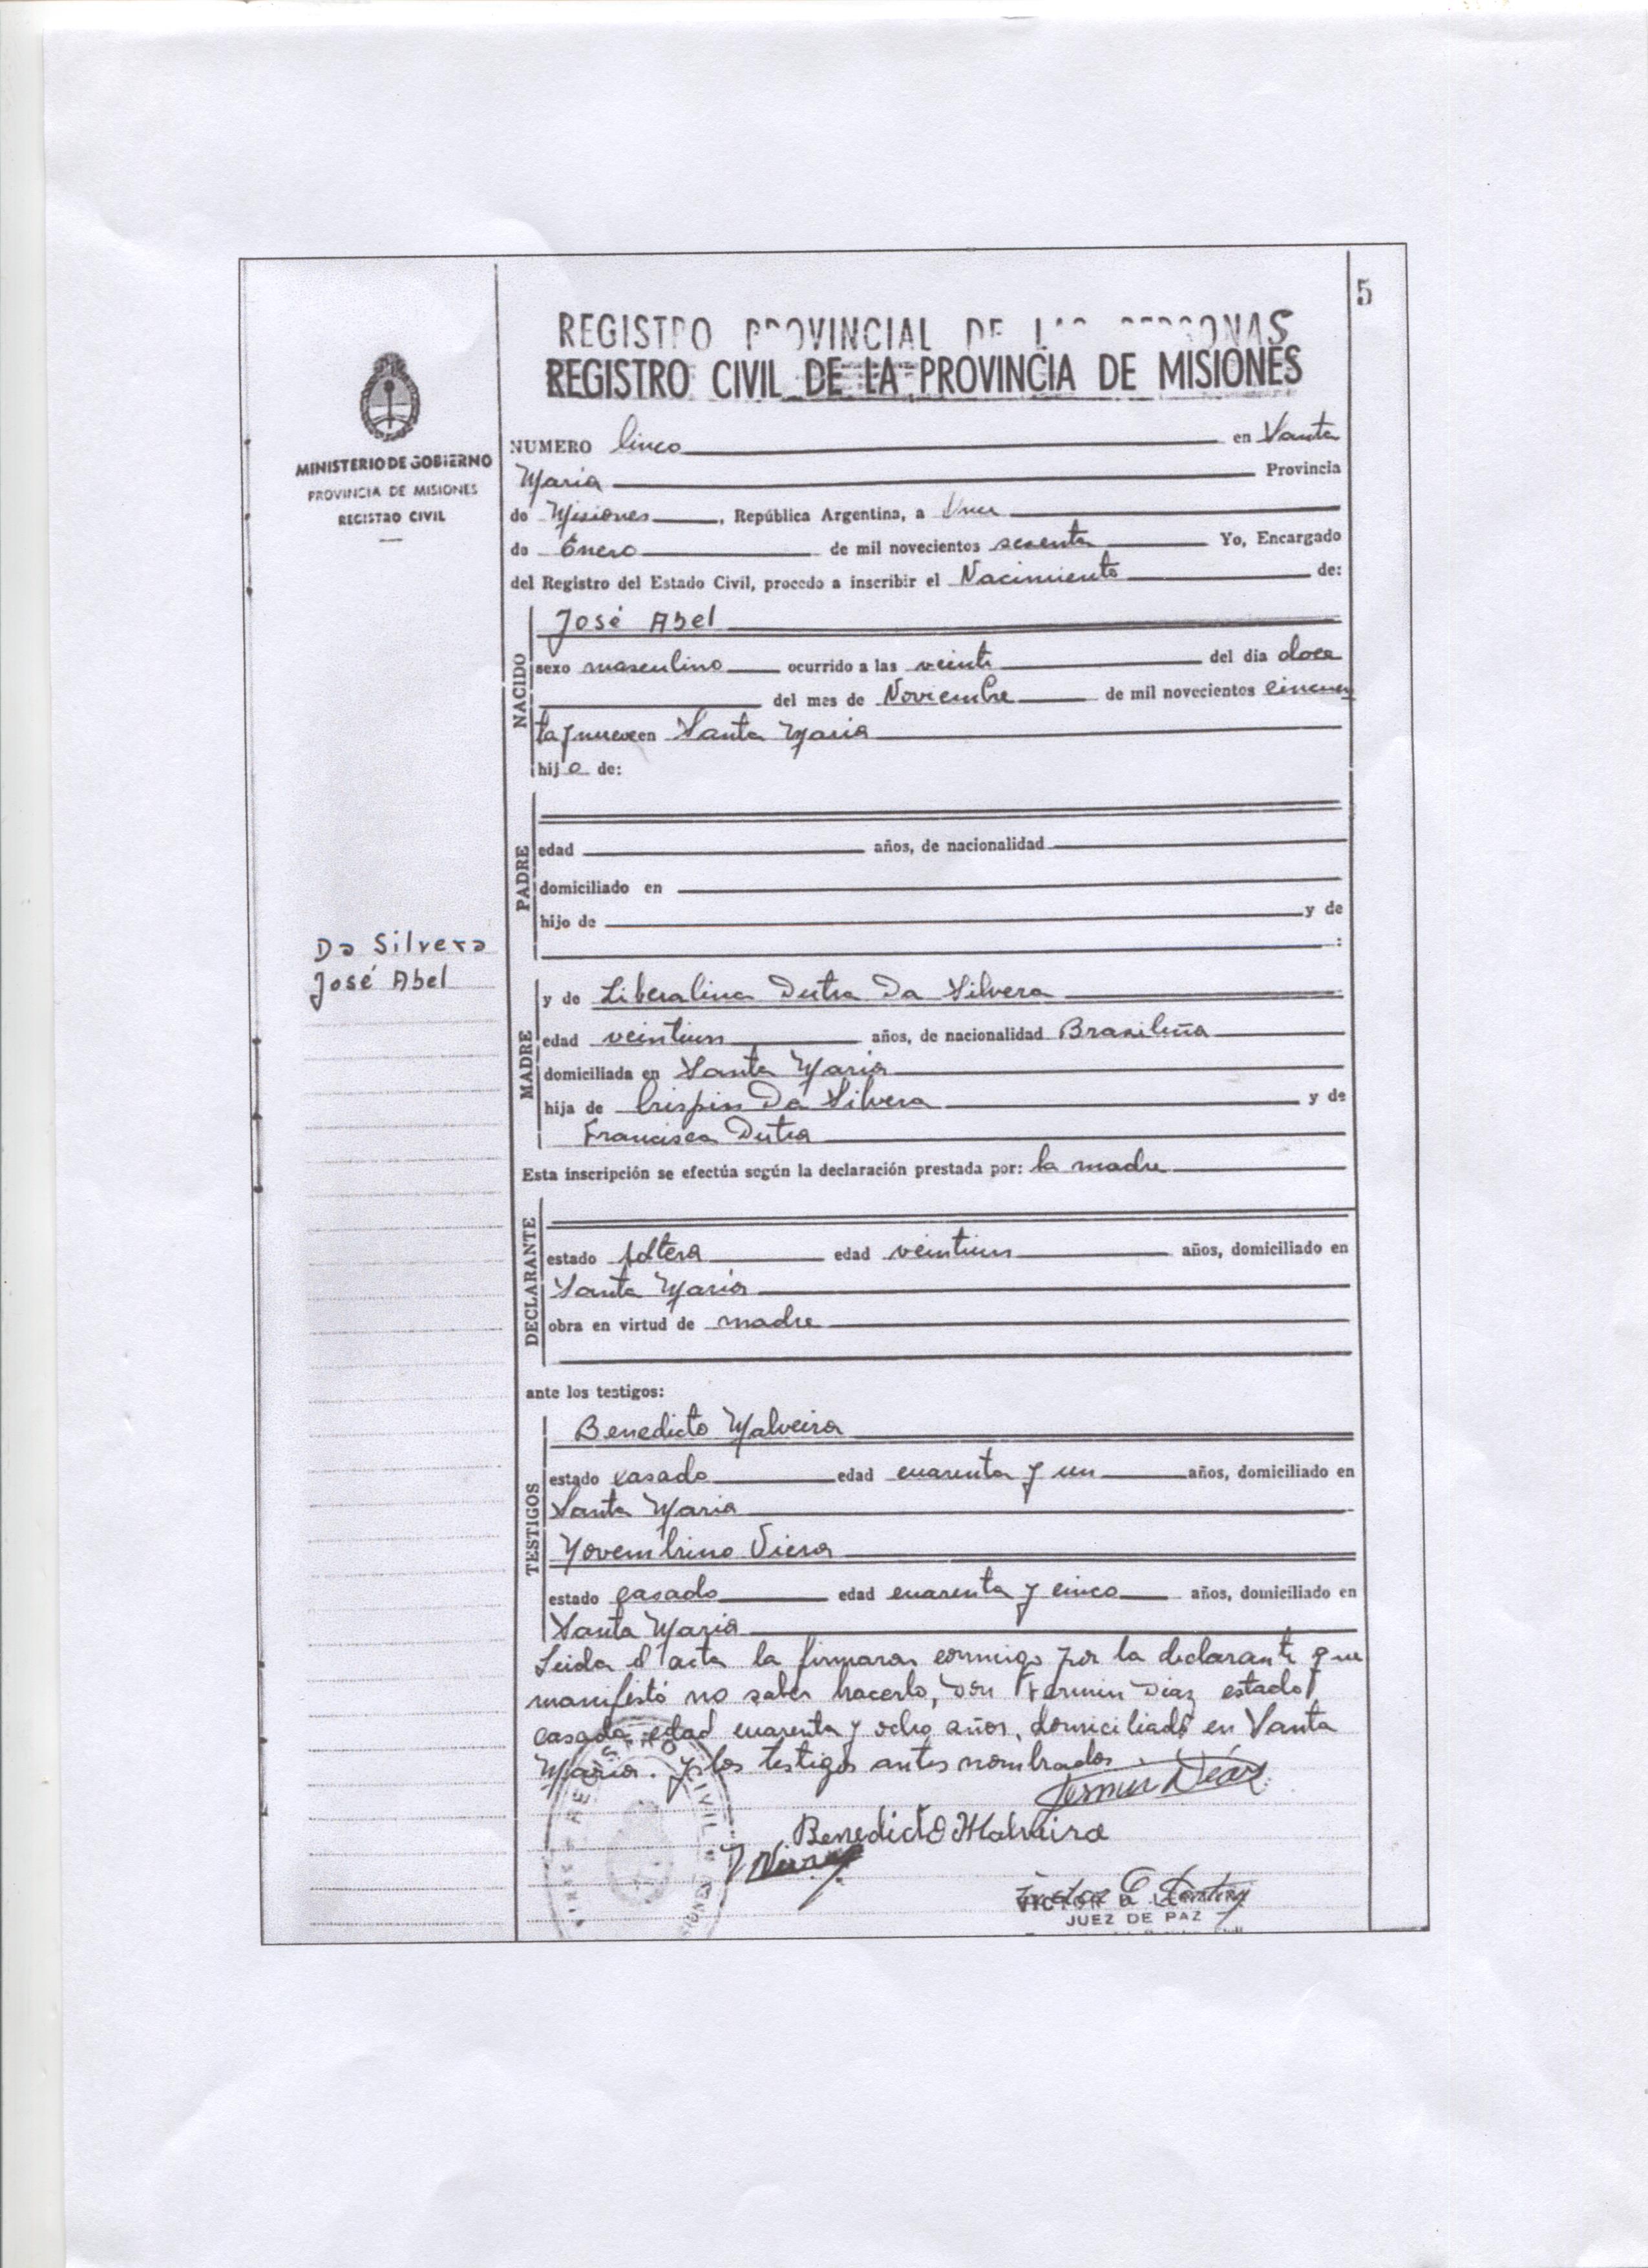 5
REGISTRO PROVINCIAL DE LAS PERSONAS
REGISTRO CIVIL DE LA PROVINCIA DE MISIONES
MINISTERIO DE GOBIERNO
PROVINCIA DE MISIONES
REGISTRO CIVIL
NUMERO Cinco en Santa
Maria Provincia
de Misiones, República Argentina, a
de Enero de mil novecientos sesenta Yo, Encargado
del Registro del Estado Civil, procedo a inscribir el Nacimiento de:
NACIDO
José Abel
sexo masculino ocurrido a las veinte del dia doce
del mes de Noviembre de mil novecientos cincuen
ta y nueve en Santa Maria
hijo de:
PADRE
edad años, de nacionalidad
domiciliado en
hijo de y de
:
Da Silvera
José Abel
MADRE
y de Liberalina Dutra Da Silvera
edad veintiun años, de nacionalidad Brasileña
domiciliada en Santa Maria
hija de Crispin Da Silvera y de
Francisca Dutra
Esta inscripción se efectúa según la declaración prestada por: la madre
DECLARANTE
estado soltera edad veintiun años, domiciliado en
Santa Maria
obra en virtud de madre
ante los testigos:
TESTIGOS
Benedicto Malveira
estado casado edad cuarenta y un años, domiciliado en
Santa Maria
Novembrino Viera
estado casado edad cuarenta y cinco años, domiciliado en
Santa Maria
Leida el acta la firmaran conmigo por la declarante que
manifestó no saber hacerlo, Don Fermin Diaz estado
casado edad cuarenta y ocho años, domiciliado en Santa
Maria. y los testigos antes nombrados.
Fermin Diaz
Benedicto Malveira
Viera
VICTOR
JUEZ DE PAZ